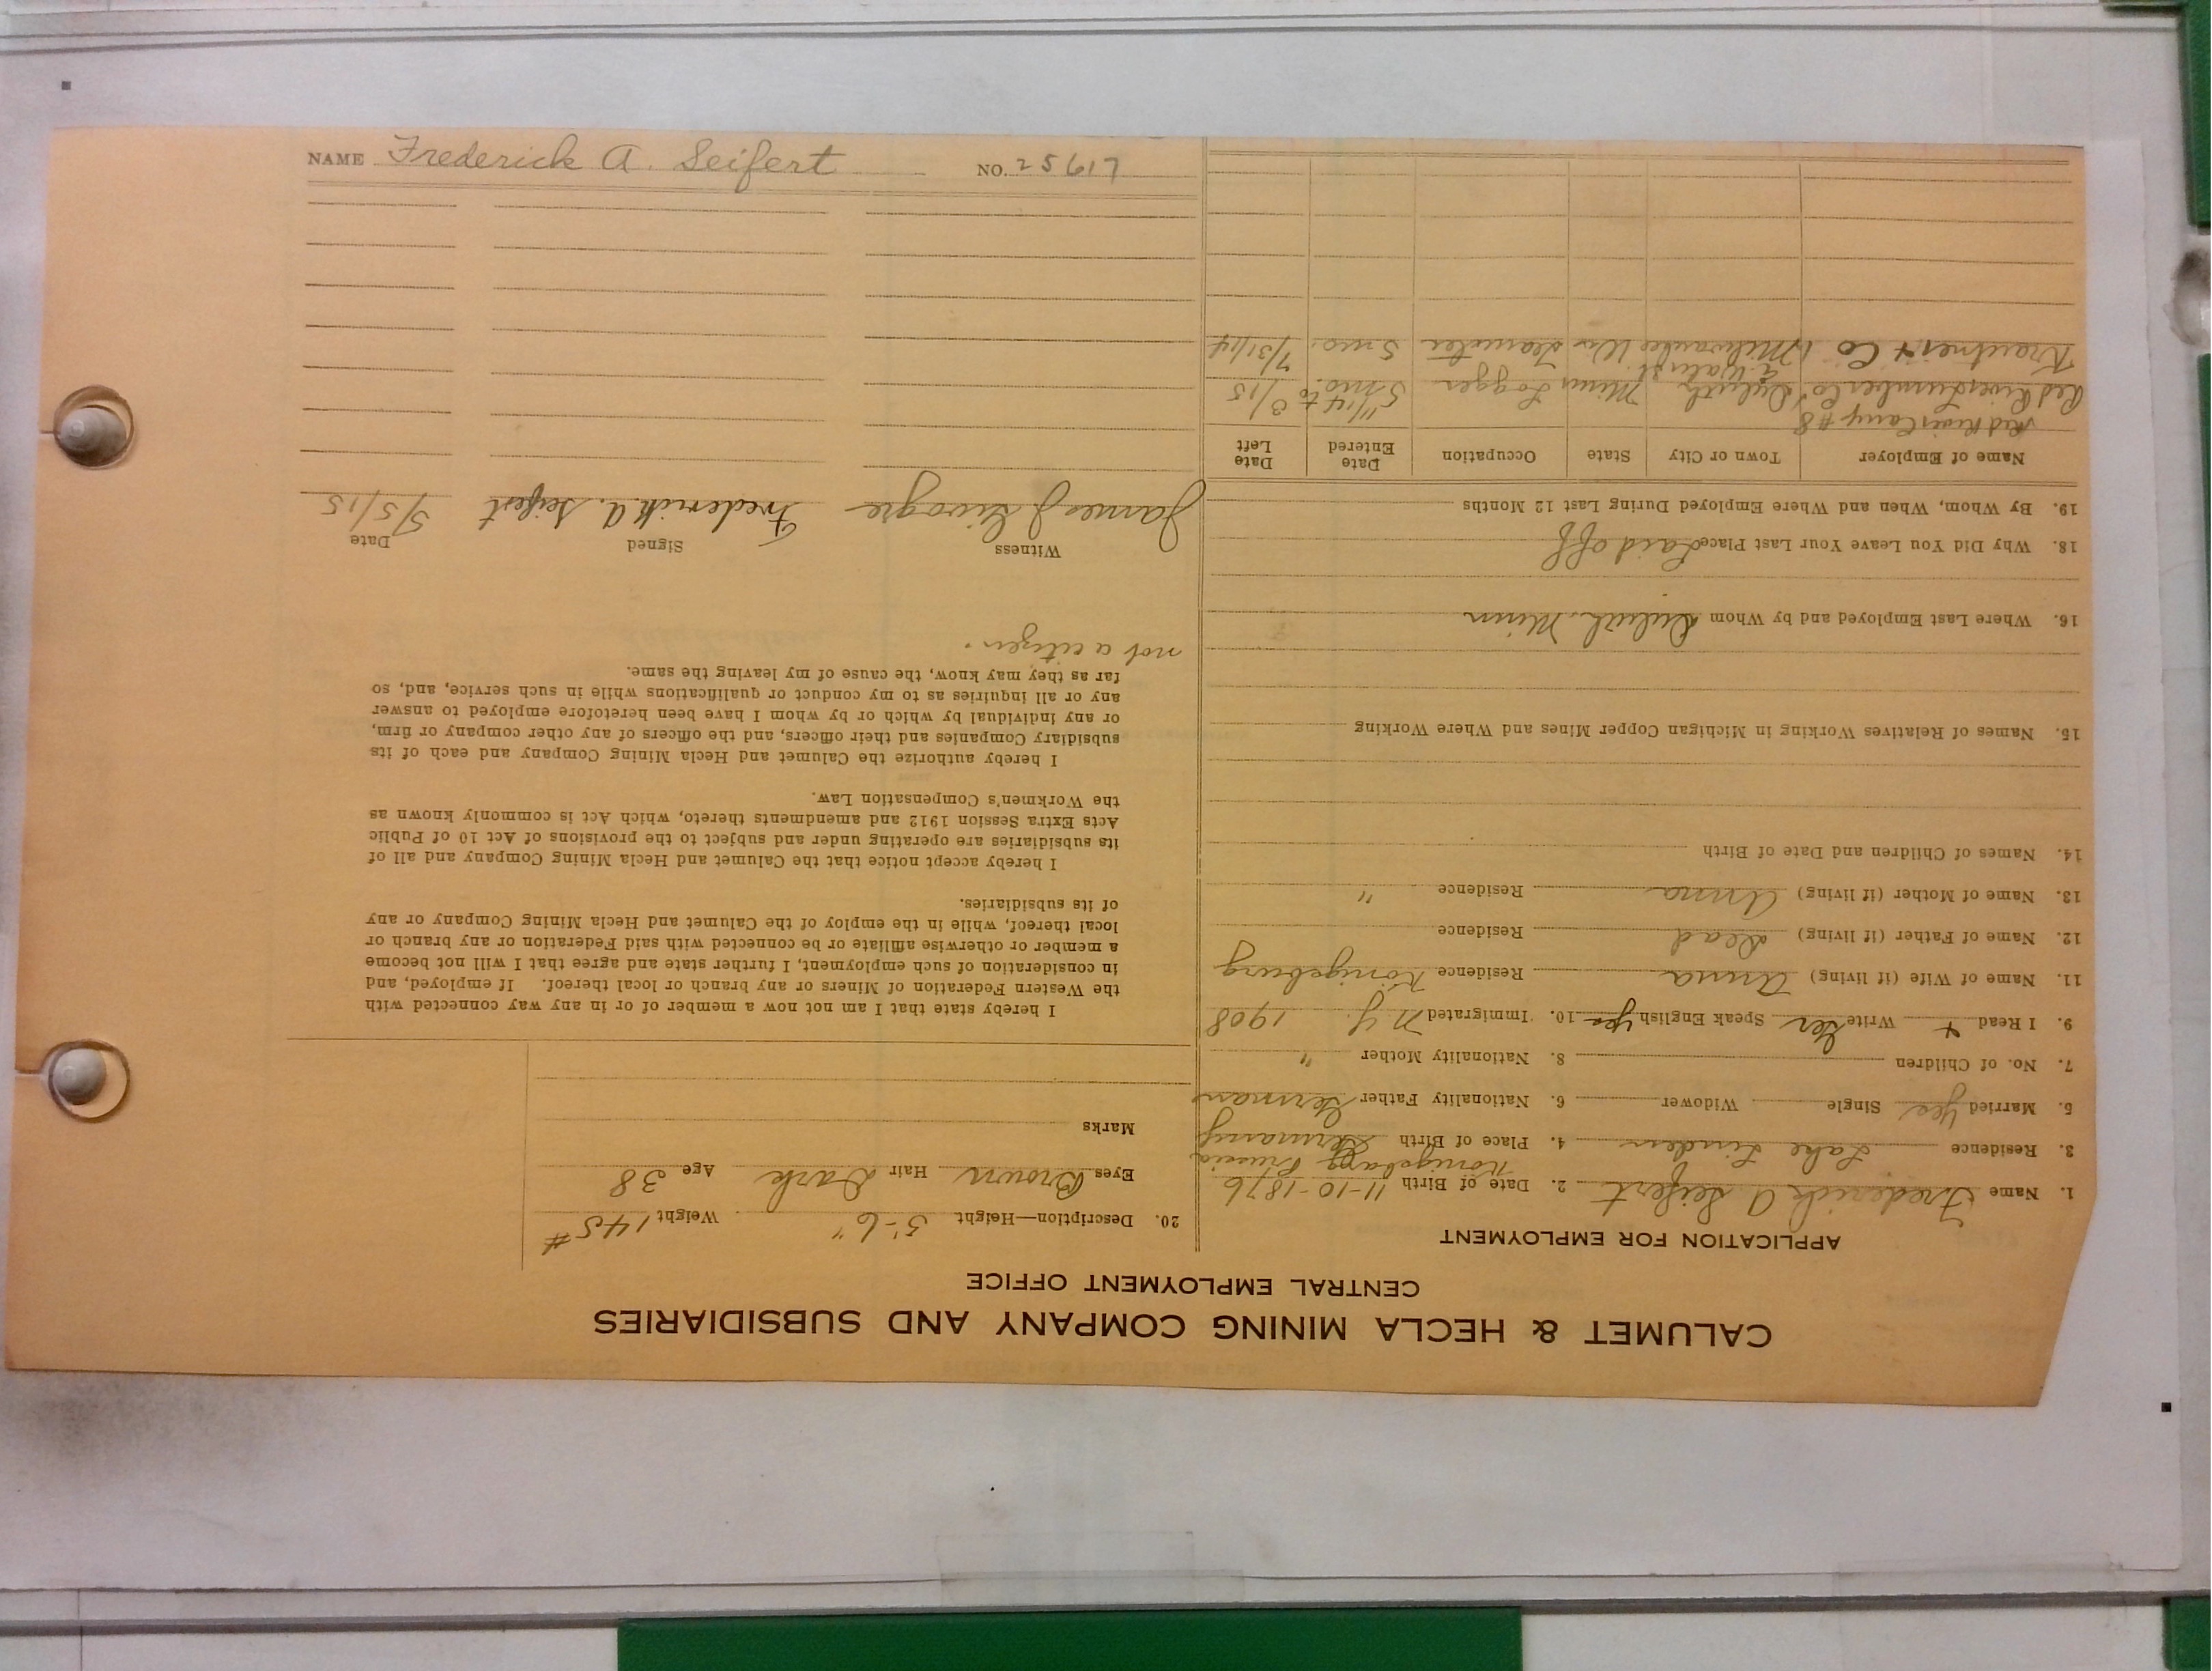 CALUMET & HECLA MINING COMPANY AND SUBSIDIARIES
CENTRAL EMPLOYMENT OFFICE
APPLICATION FOR EMPLOYMENT
1. Name Frederick A Seifert 2. Date of Birth 11-10-1876
Königsburg Prussia
3. Residence Lake Linden 4. Place of Birth Germany
5. Married Yes Single Widower 6. Nationality Father German
7. No. of Children 8. Nationality Mother "
9. I Read + Write Ger Speak English Yes 10. Immigrated N.Y. 1908
11. Name of Wife (if living) Anna Residence Königsburg
12. Name of Father (if living) Dead Residence
13. Name of Mother (if living) Anna Residence "
14. Names of Children and Date of Birth
15. Names of Relatives Working in Michigan Copper Mines and Where Working
16. Where Last Employed and by Whom Duluth, Minn
18. Why Did You Leave Your Last Place Laid off
19. By Whom, When and Where Employed During Last 12 Months
Name of Employer Town or City State Occupation Date Entered Date Left
Red River Camp #8
Red River Lumber Co. Duluth Minn Logger 5 mo. 11/14 to 3/15
Milwaukee Wis Teamster 5 mo. 7/31/14
20. Description—Height 5'-6" Weight 145#
Eyes Brown Hair Dark Age 38
Marks
I hereby state that I am not now a member of or in any way connected with
the Western Federation of Miners or any branch or local thereof. If employed, and
in consideration of such employment, I further state and agree that I will not become
a member or otherwise affiliate or be connected with said Federation or any branch or
local thereof, while in the employ of the Calumet and Hecla Mining Company or any
of its subsidiaries.
I hereby accept notice that the Calumet and Hecla Mining Company and all of
its subsidiaries are operating under and subject to the provisions of Act 10 of Public
Acts Extra Session 1912 and amendments thereto, which Act is commonly known as
the Workmen's Compensation Law.
I hereby authorize the Calumet and Hecla Mining Company and each of its
subsidiary Companies and their officers, and the officers of any other company or firm,
or any individual by which or by whom I have been heretofore employed to answer
any or all inquiries as to my conduct or qualifications while in such service, and, so
far as they may know, the cause of my leaving the same.
not a citizen.
Witness Signed Date
James J Frederick A. Seifert 5/5/15
NAME Frederick A. Seifert NO. 25617